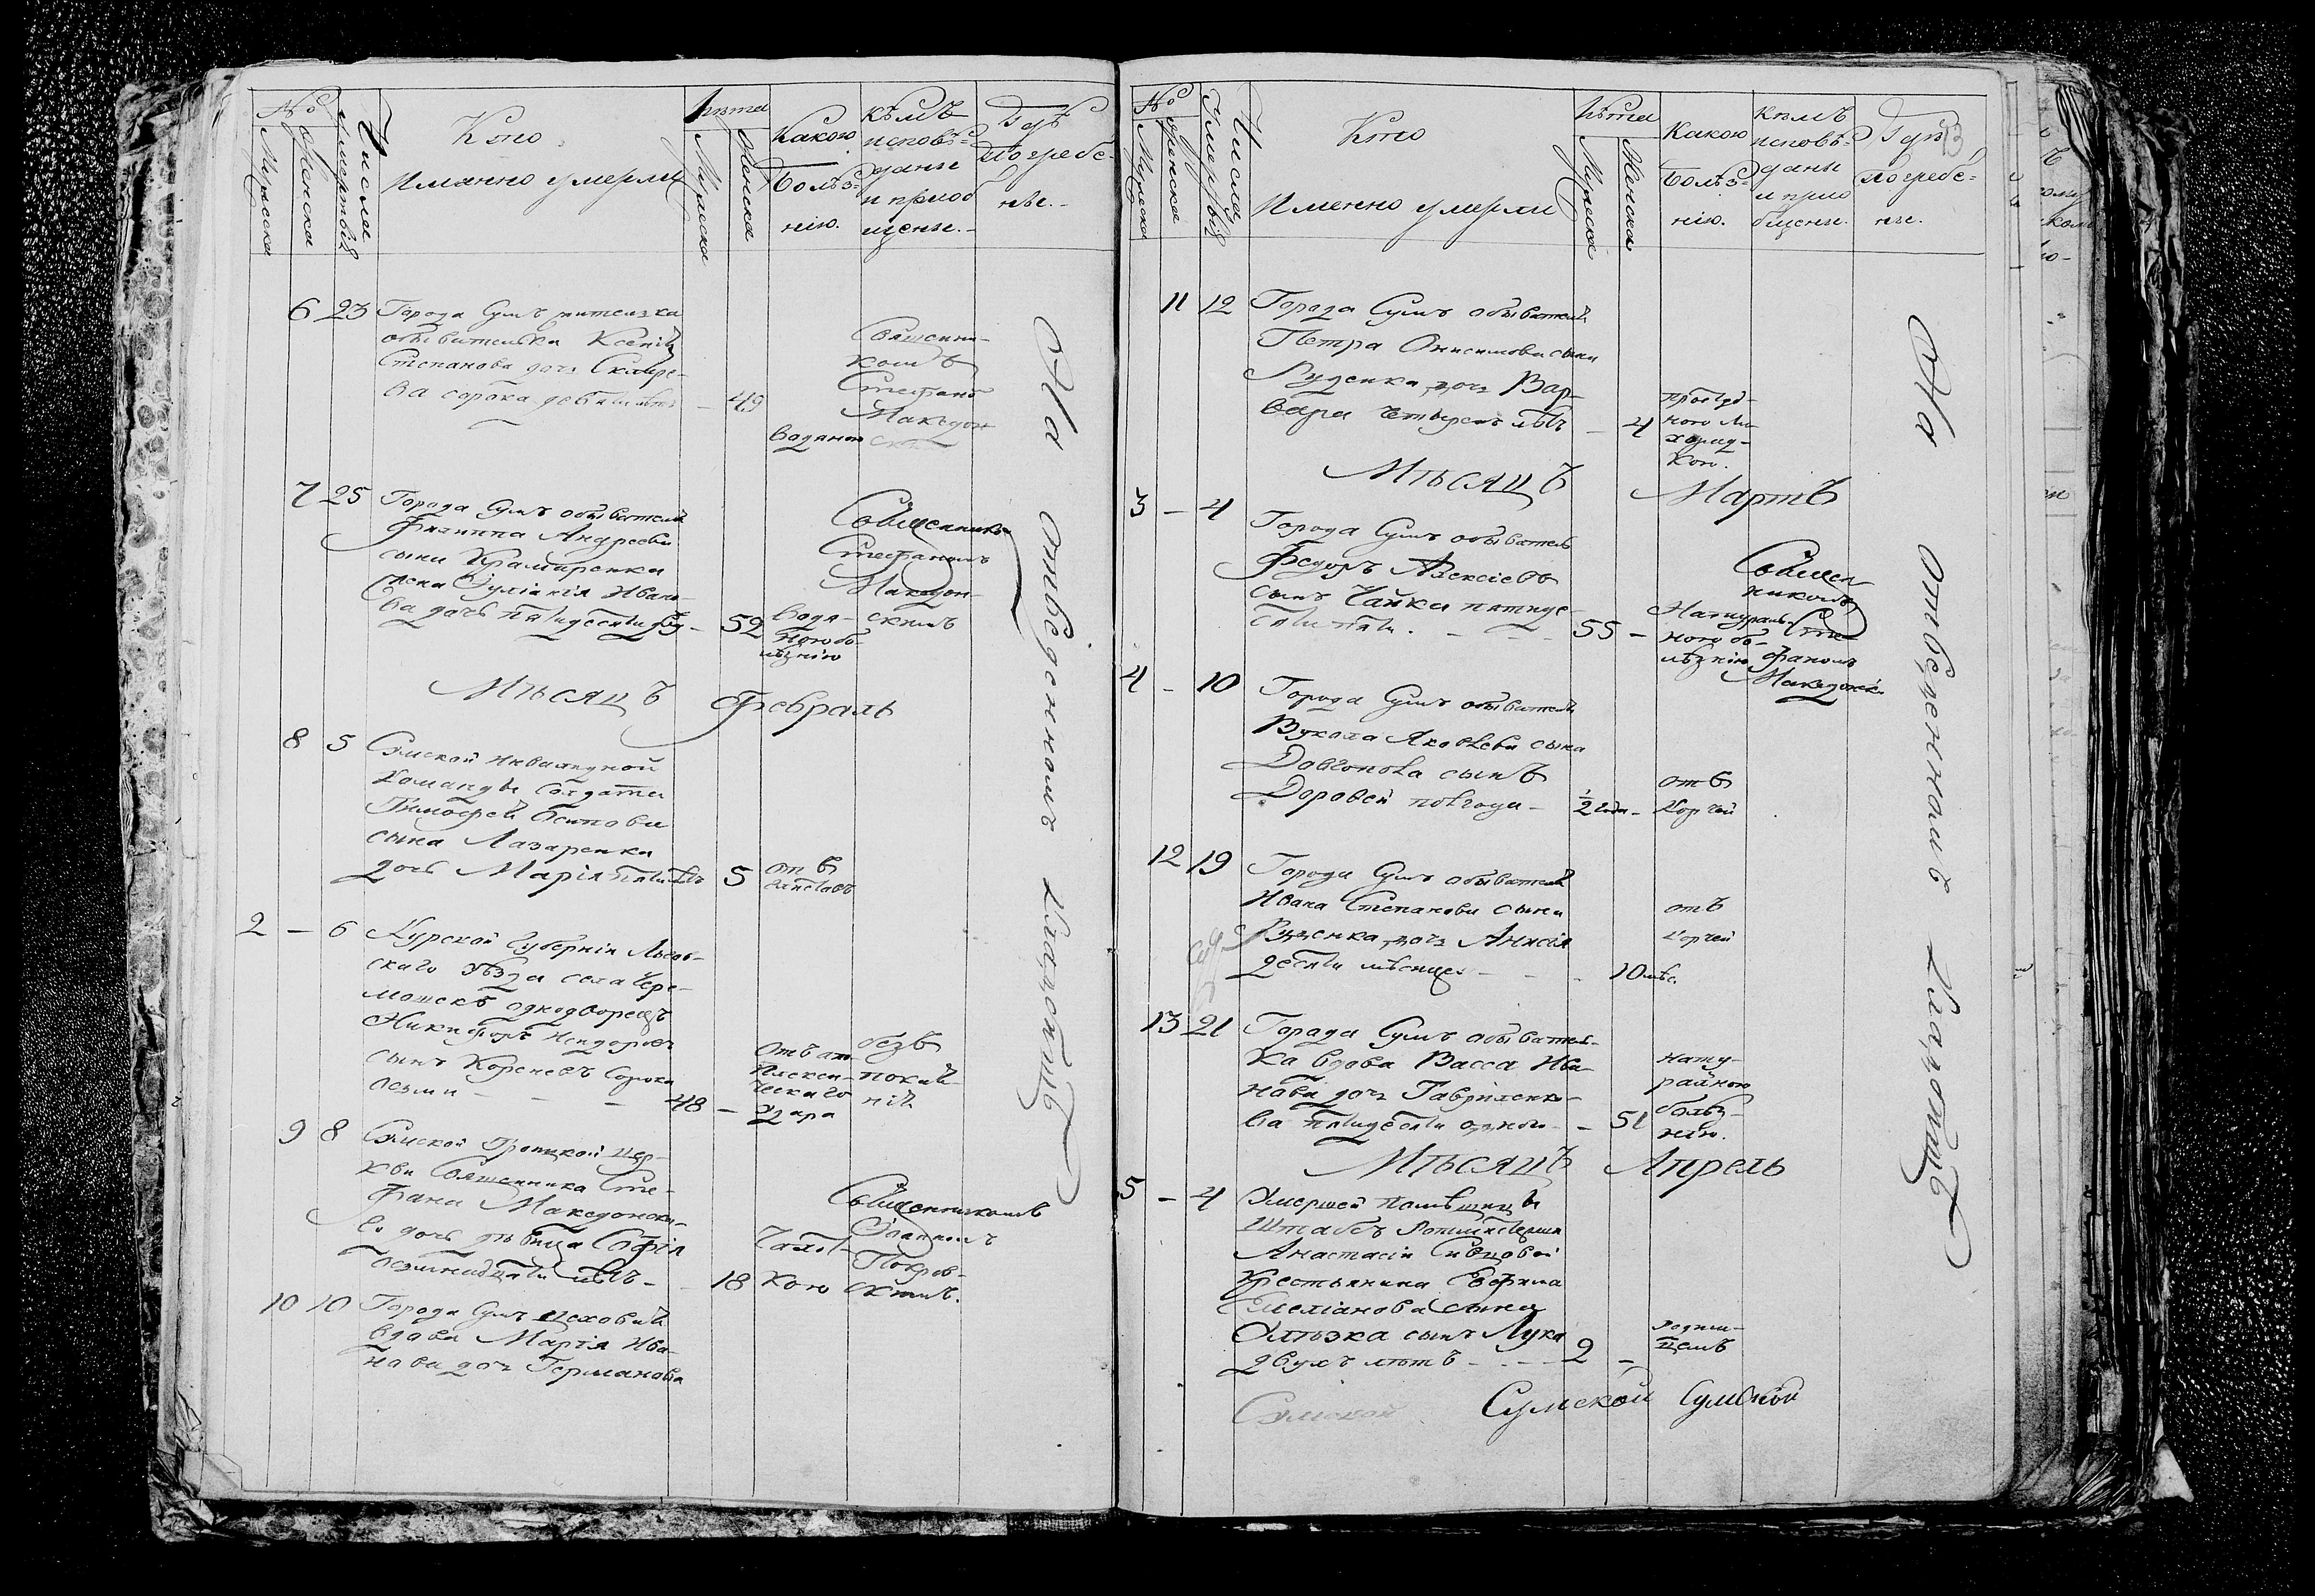 №
Мужеска
Женска
Числа
Умертвія
Кто
Имянно умерли
Лѣта
Мужеска
Женска
Какою
болѣз-
нію.
Кѣмъ
исповѣ-
даны
и приоб
щены.-
Гдѣ
погребе-
ны.-
6 23 Города Сумъ жителька
обывателька Ксенія
Степанова дочь
ва сорока девяти лѣтъ - 49
водяною
Священни-
комъ
Стефано
Македон
ски
7 25 Города Сумъ обывателя
Филиппа Андреева
сына Крамаренка
жена Іуліанія Ивано-
ва дочь пятидесяти - 52
водя-
ною бо-
лѣзнію
Священнико
Стефаномъ
Македон-
скимъ
Мѣсяцъ Февраль
8 5 Сумской инвалидной
команды солдата
Тимофея Осипова
сына Лазаренка
дочь Марія пяти лѣтъ 5
отъ
2 - 6 Курской губерніи Льгов-
скаго уѣзда села Чере-
мошекъ однодворецъ
Никифоръ
сынъ Кореневъ сорока
осьми - - - 48 -
отъ апо-
плекси-
ческаго
удара
безъ
покая-
нія
9 8 Сумской Троицкой цер-
кви Священника Сте-
фана Македонска-
го дочь дѣвица Софія
осмнадцяти лѣтъ - 18
Чахот-
кою
Священникомъ
Іоанномъ
Покров-
скимъ.
10 10 Города Сумъ цеховая
вдова Марія Ива-
нова дочь Германова
На отведенномъ кладбищѣ
№
Мужеска
Женска
Числа
Умертвія
Кто
Именно умерли
Лѣта
Мужеска
Женска
Какою
болѣз-
нію.
Кѣмъ
исповѣ-
даны
и прио
бщены.
Гдѣ
погребе-
ны.
13
11 12 Города Сумъ обывателя
Петра Онисимова сына
Руденка дочь Вар-
вара четырехъ лѣтъ - 4
простуд-
ною ли-
хорад-
кою.
Мѣсяцъ Мартъ
3 - 4 Города Сумъ обыватель
Федоръ Алексіевъ
сынъ Чайка пятиде-
сяти пяти. - - - 55 -
Натураль-
ною бо-
лѣзнію
Священ
никомъ
Сте-
фаномъ
Македонск.
4 - 10 Города Сумъ обывателя
Вукола Яковлева сына
Довгопола сынъ
Доровей полгода - 1/2 года -
отъ
корчей
12 19 Города Сумъ обывателя
Ивана Степанова сына
Руденка дочь Анисія
десяти мѣсяцев - - - 10 мѣс.
отъ
корчей
13 21 Города Сумъ обывател-
ка вдова Васса Ива-
нова дочь Гавриленко-
ва пятидесяти одного - - 51
нату-
ральною
болѣз-
нію.
Мѣсяцъ Апрель
5 - 4 Умершей помѣщицы
Штабъ Ротмистерши
Анастасіи Сивцовой
крестьянина Евфима
Емеліанова сына
сынъ Лука
двухъ лѣтъ - - - 2 -
родим-
цемъ
Сумской Сумской Сумской
На отведенномъ кладбищѣ